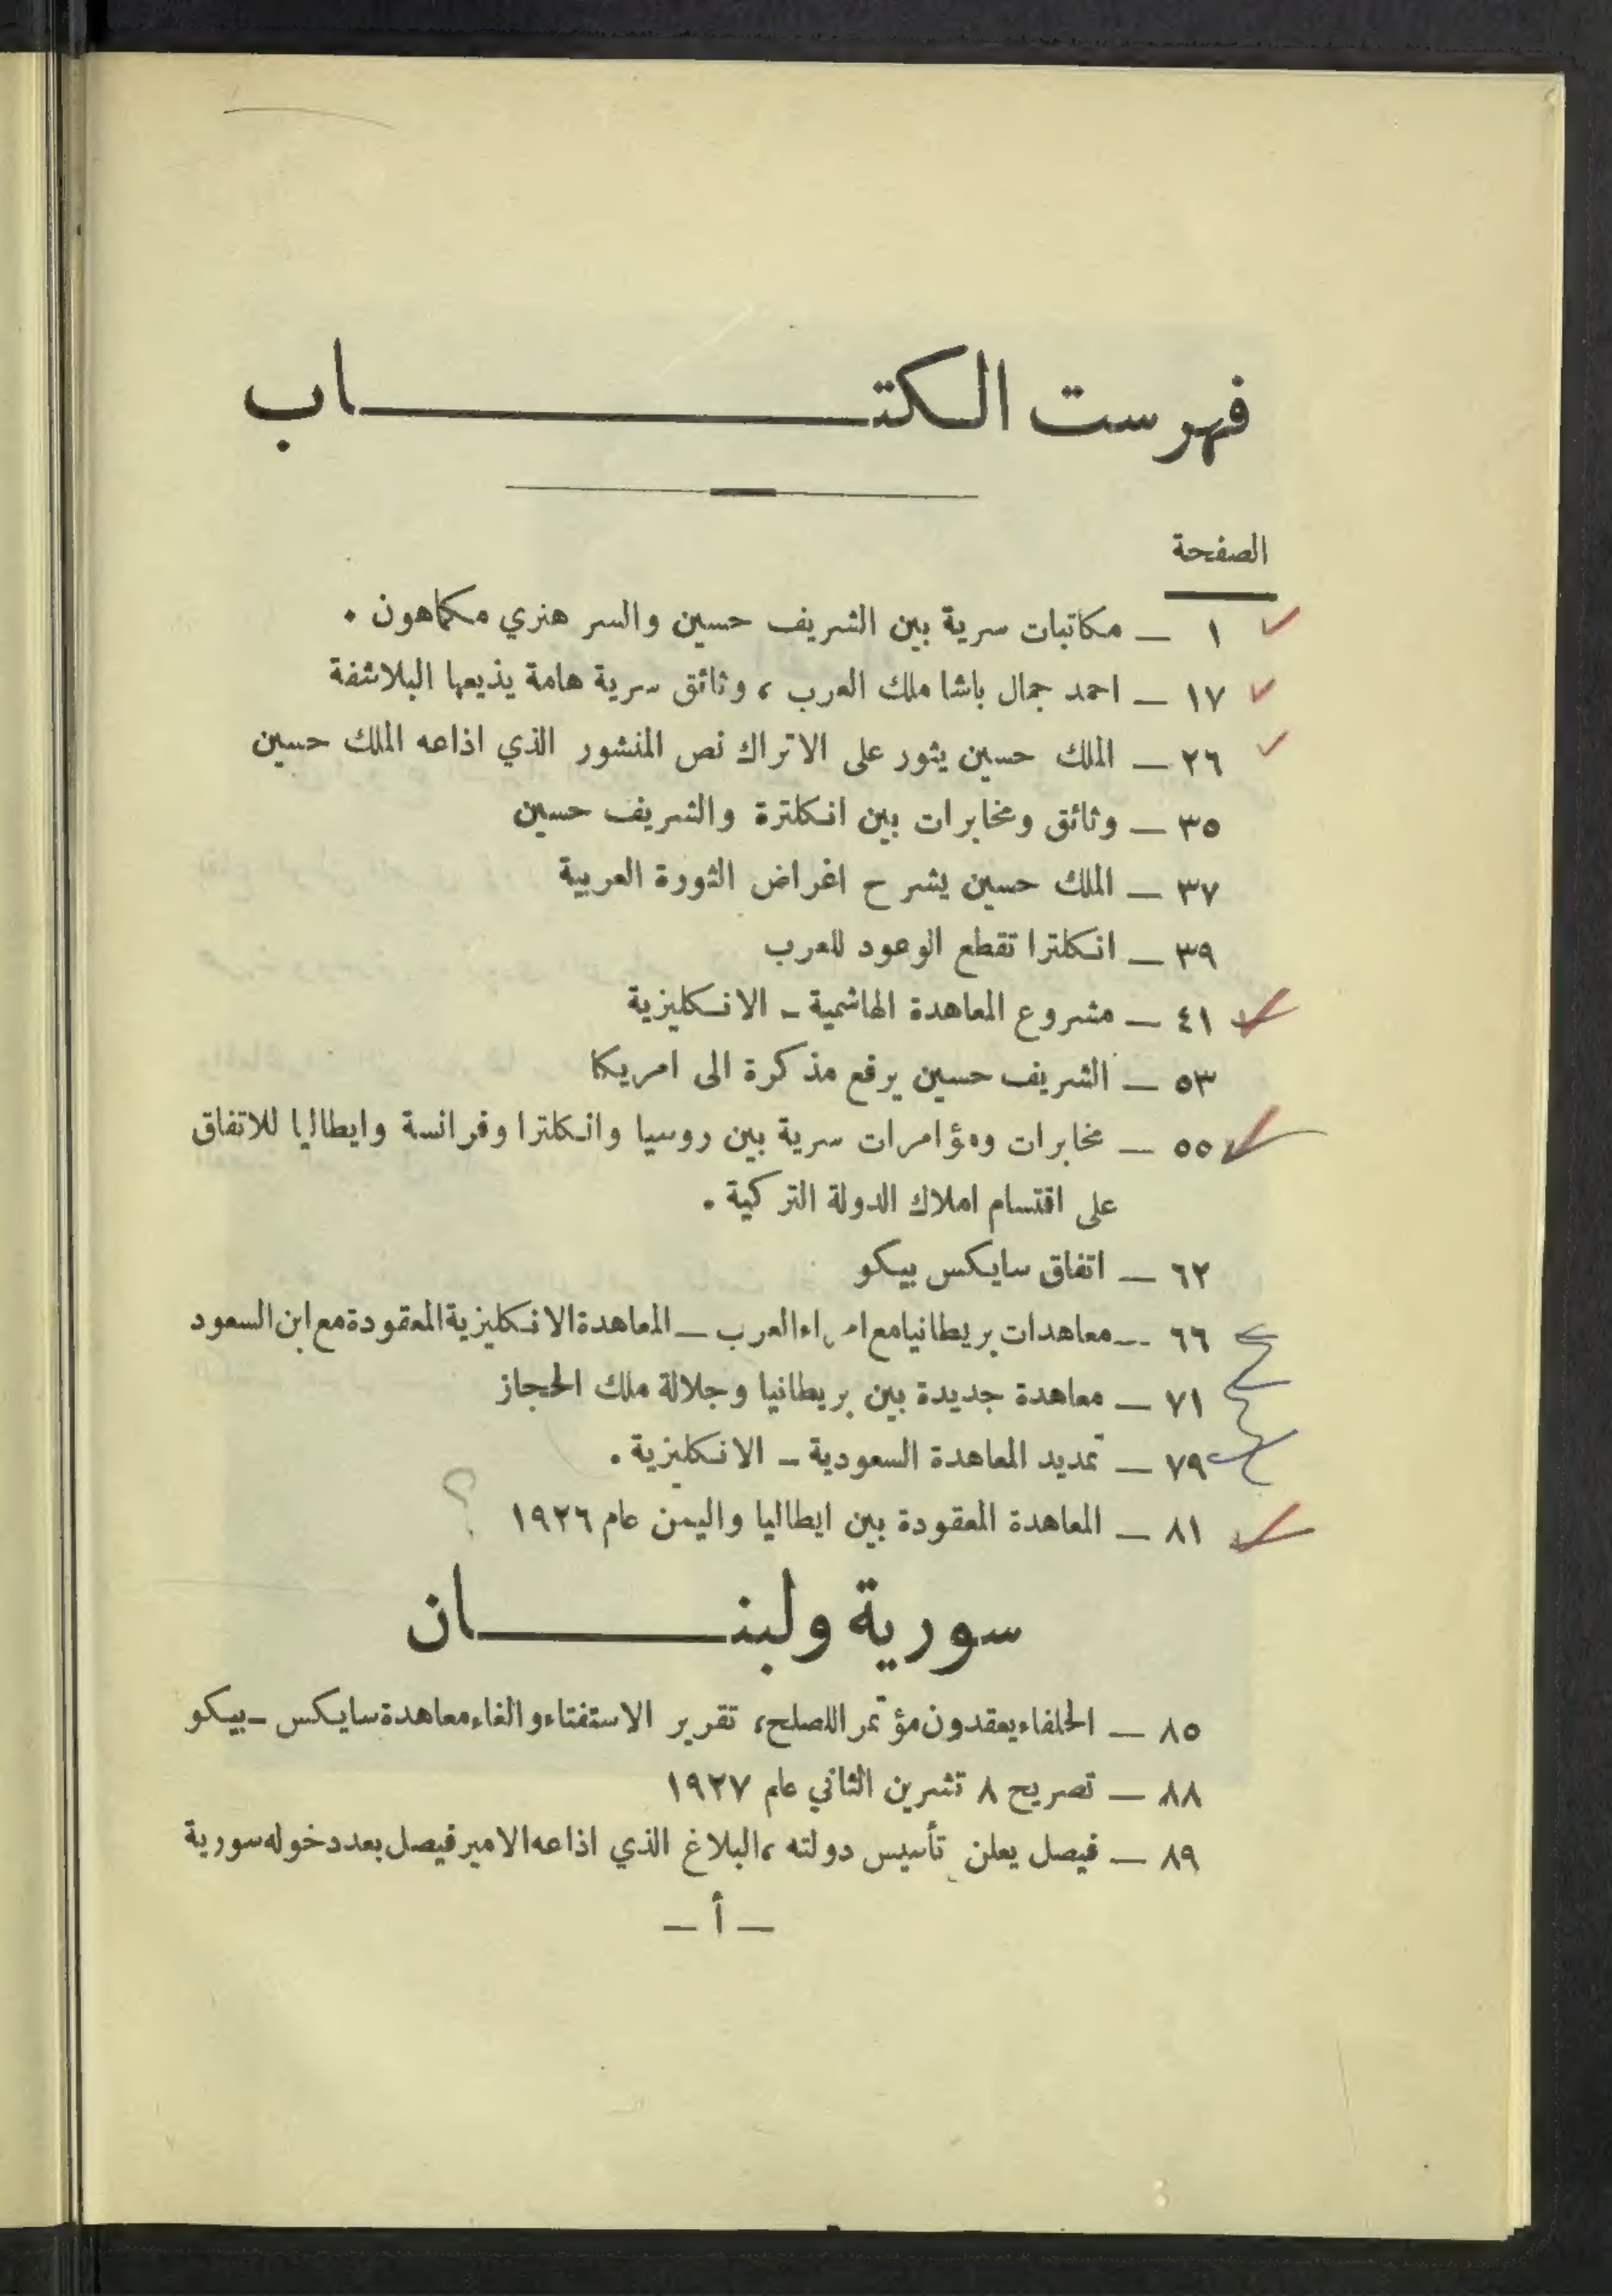 فهرست الكتـــــــــاب
الصفحة
١ — مكاتبات سرية بين الشريف حسين والسر هنري مكماهون .
١٧ — احمد جمال باشا ملك العرب ، وثائق سرية هامة يذيعها البلاشفة
٢٦ — الملك حسين يثور على الاتراك نص المنشور الذي اذاعه الملك حسين
٣٥ — وثائق ومخابرات بين انكلترة والشريف حسين
٣٧ — الملك حسين يشرح اغراض الثورة العربية
٣٩ — انكلترا تقطع الوعود للعرب
٤١ — مشروع المعاهدة الهاشمية - الانكليزية
٥٣ — الشريف حسين يرفع مذكرة الى امريكا
٥٥ — مخابرات ومؤامرات سرية بين روسيا وانكلترا وفرانسة وايطاليا للاتفاق
على اقتسام املاك الدولة التركية .
٦٢ — اتفاق سايكس بيكو
٦٦ — معاهدات بريطانيا مع امراء العرب — المعاهدة الانكليزية المعقودة مع ابن السعود
٧١ — معاهدة جديدة بين بريطانيا وجلالة ملك الحجاز
٧٩ — تمديد المعاهدة السعودية - الانكليزية .
٨١ — المعاهدة المعقودة بين ايطاليا واليمن عام ١٩٢٦ ؟
سورية ولبنـــــــان
٨٥ — الحلفاء يعقدون مؤتمر اللصلح، تقرير الاستفتاء والغاء معاهدة سايكس - بيكو
٨٨ — تصريح ٨ تشرين الثاني عام ١٩٢٧
٨٩ — فيصل يعلن تأسيس دولته ، البلاغ الذي اذاعه الامير فيصل بعد دخوله سورية
— أ —